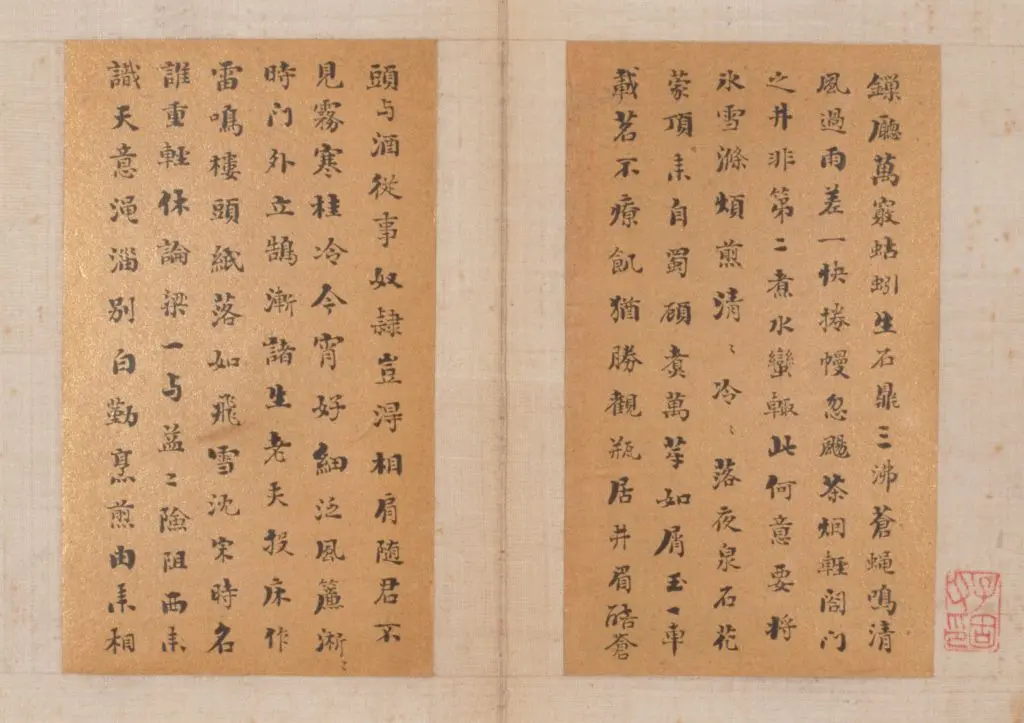 鏁廳萬竅蛄蚓生石鼎三沸蒼蠅鳴清
風過雨差一快捲幔忽颺茶烟輕閤門
之井非第二煮水蠻輙此何意要將
氷雪滌煩煎清〻冷〻落夜泉石花
蒙頂来自蜀碩煑萬芽如屑玉一車
載茗不療飢猶勝觀瓶居井眉醅蒼
頭与酒從事奴隷豈淂相肩随君不
見霧寒桂冷今宵好細泛風簾淅〻
時门外立鵠漸諸生老天投床作
雷鳴樓頭紙落如飛雪沈宋時名
誰重輊休論梁一与益二險阻西来
識天意渑淄别白勤烹煎由来相